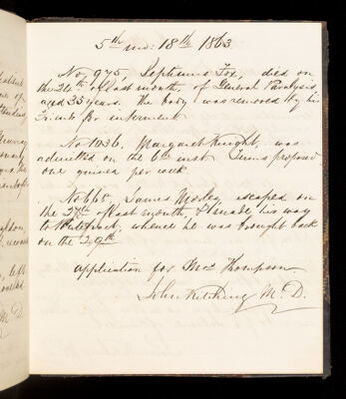 5th mo: 18th 1863
No 975, Septimus Fox, died on
the 24th of last month, of General Paralysis
aged 35 years. the body was removed by his
Friends for interment
No 1036. Margaret Knight, was
admitted on the 6th inst Terms proposed
one guinea per week
No 665. James Morley, escaped on
the 27th of last month, & made his way
to Pontefract, whence he was brought back
on the 29th
application for Mrs Thompson
John Kitching M.D.